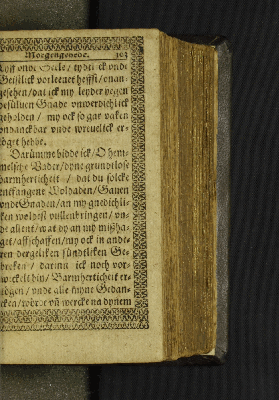 Morgengebede. 103
Lyff vnde Seele / tydtlick vnde
Geistlick vorlenet heffst / onan-
gesehen / dat ick my leyder yegen
desülven Gnade vnwerdichlick
geholden / my ock so gar vaken
vndanckbar vnde wreuelick er-
töget hebbe.
Darümme bidde ick / O hem-
melsche Vader / dyne grundtlose
barmherticheit / dat du solcke
entfangene Woldaden / Gauen
vnde Gnaden / an my gnedichli-
ken woldest vullenbringen / vn-
de allent / wat dy an my mißha-
get / affschaffen / my ock in ande-
ren dergeliken sündtliken Ge-
breken / darinn ick noch vor-
wickelt bin / Barmherticheit er-
tögen / vnde alle myne Gedan-
cken / wörde vñ wercke na dynem